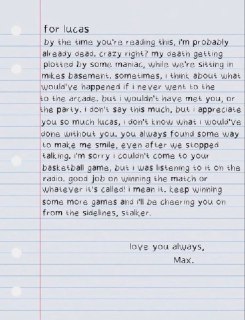 for lucas
by the time you're reading this, i'm probably
already dead. crazy right? my death getting
plotted by some maniac, while we're sitting in
mikes basement. sometimes, i think about what
would've happened if i never went to the
to the arcade, but i wouldn't have met you, or
the party. i don't say this much, but i appreciate
you so much lucas, i don't know what i would've
done without you. you always found some way
to make me smile, even after we stopped
talking. i'm sorry i couldn't come to your
basketball game, but i was listening to it on the
radio. good job on winning the match or
whatever it's called! i mean it. keep winning
some more games and i'll be cheering you on
from the sidelines, stalker.
love you always,
Max.